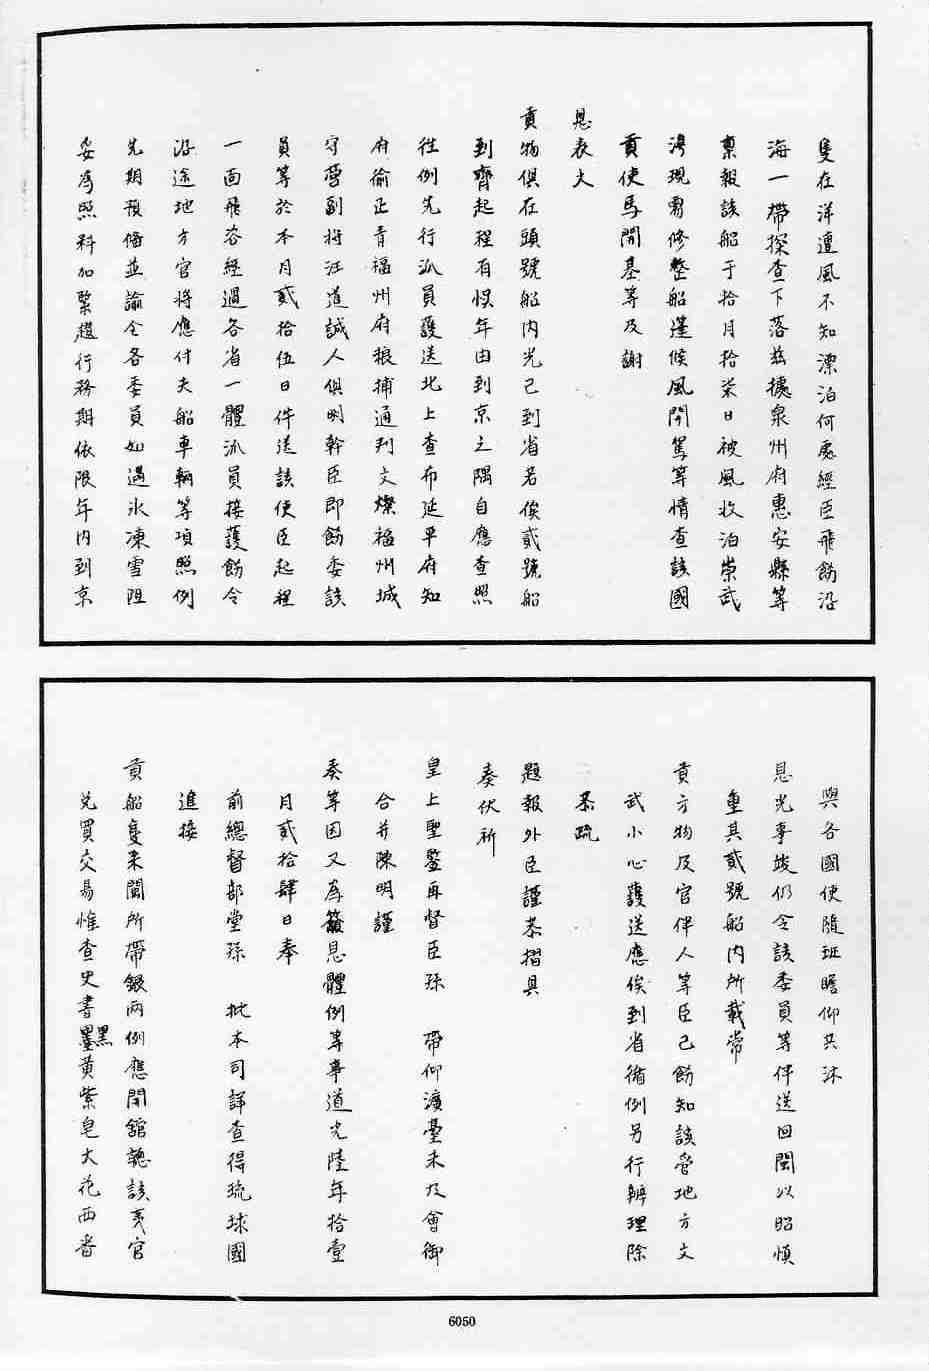 隻在洋遭風不知漂泊何處經臣飛飭沿
海一帶探查下落茲據泉州府惠安縣等
稟報該船于拾月拾柒日被風收泊崇武
灣現需修整船蓬候風開駕等情查該國
貢使馬開基等及謝
恩表文
貢物俱在頭號船內先已到省若俟貳號船
到齊起程有悞年由到京之隅自應查照
往例先行派員護送北上查布延平府知
府徐正青福州府粮捕通判文燦福州城
守營副將汪道誠人俱明幹臣即飭委該
員等於本月貳拾伍日伴送該使臣起程
一面飛咨經過各省一體派員接護飭令
沿途地方官將應付夫船車輛等項照例
先期預備並諭令各委員如遇氷凍雪阻
妥為照料加緊趲行務期依限年內到京
與各國使隨班瞻仰共沐
恩光事竣仍令該委員等伴送回閩以昭慎
重其貳號船內所載常
貢方物及官伴人等臣已飭知該管地方文
武小心護送應俟到省循例另行辦理除
恭疏
題報外臣謹恭摺具
奏伏祈
皇上聖鑒再督臣孫 帶仰濱臺未及會御
合并陳明謹
奏等因又為籲恩體例等事道光陸年拾壹
月貳拾肆日奉
前總督部堂孫 批本司詳查得琉球國
進接
貢船隻來閩所帶銀兩例應開舘聽該夷官
兌買交易惟查史書黑黃紫皂大花西番
6050